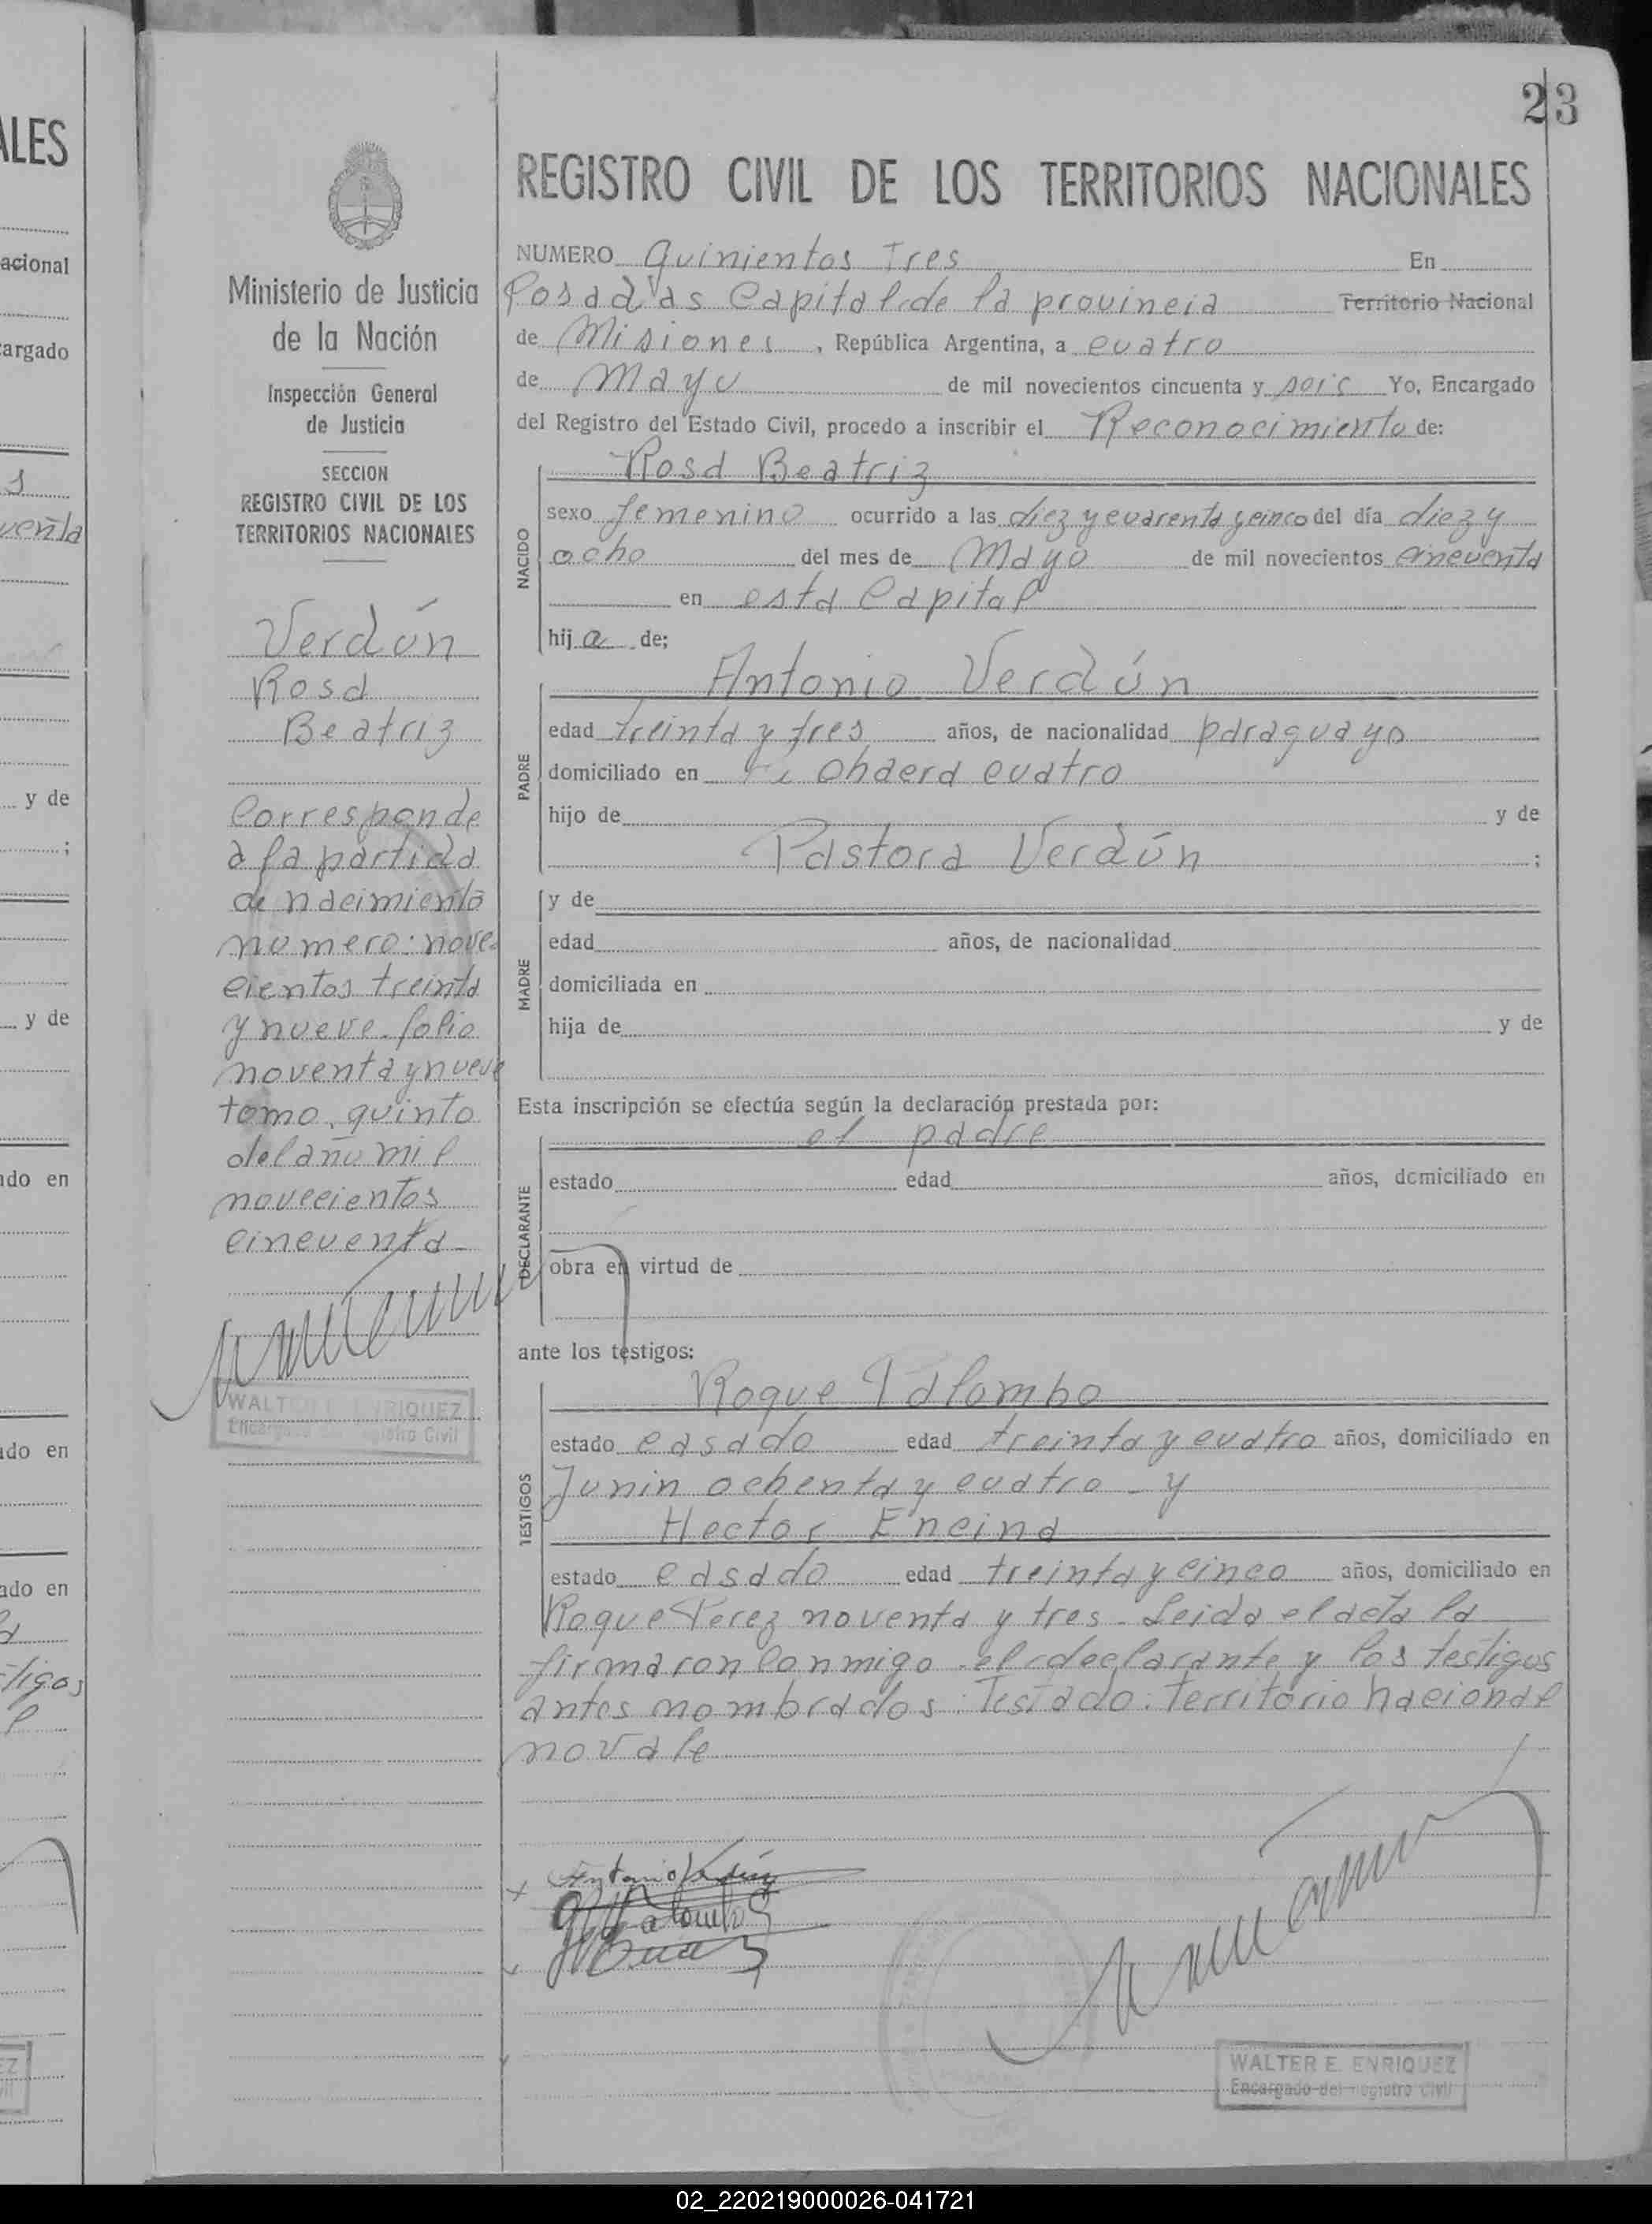 ALES
acional
argado
y de
;
y de
do en
do en
ado en
tigos
23
Ministerio de Justicia
de la Nación
Inspección General
de Justicia
SECCION
REGISTRO CIVIL DE LOS
TERRITORIOS NACIONALES
Verdún
Rosa
Beatriz
Corresponde
a la partida
de nacimiento
numero: nove
cientos treinta
y nueve folio
noventa y nueve
tomo quinto
del año mil
novecientos
cincuenta
WALTER E. ENRIQUEZ
Encargado del Registro Civil
REGISTRO CIVIL DE LOS TERRITORIOS NACIONALES
NUMERO Quinientos Tres En
Posadas Capital de la provincia Territorio Nacional
de Misiones, República Argentina, a cuatro
de Mayo de mil novecientos cincuenta y seis Yo, Encargado
del Registro del Estado Civil, procedo a inscribir el Reconocimiento de:
NACIDO
Rosa Beatriz
sexo femenino ocurrido a las diez y cuarenta y cinco del día diez y
ocho del mes de Mayo de mil novecientos cincuenta
en esta Capital
hija de;
PADRE
Antonio Verdún
edad treinta y tres años, de nacionalidad paraguayo
domiciliado en Chacra cuatro
hijo de y de
Pastora Verdún ;
MADRE
y de
edad años, de nacionalidad
domiciliada en
hija de y de
Esta inscripción se efectúa según la declaración prestada por:
DECLARANTE
el padre
estado edad años, domiciliado en
obra en virtud de
ante los testigos:
TESTIGOS
Roque Palombo
estado casado edad treinta y cuatro años, domiciliado en
Junin ochenta y cuatro - y
Hector Encina
estado casado edad treinta y cinco años, domiciliado en
Roque Perez noventa y tres. Leida el acta la
firmaron conmigo el declarante y los testigos
antes nombrados: Testado: Territorio nacional
no vale
Antonio Verdún
WALTER E. ENRIQUEZ
Encargado del Registro Civil
02_220219000026-041721